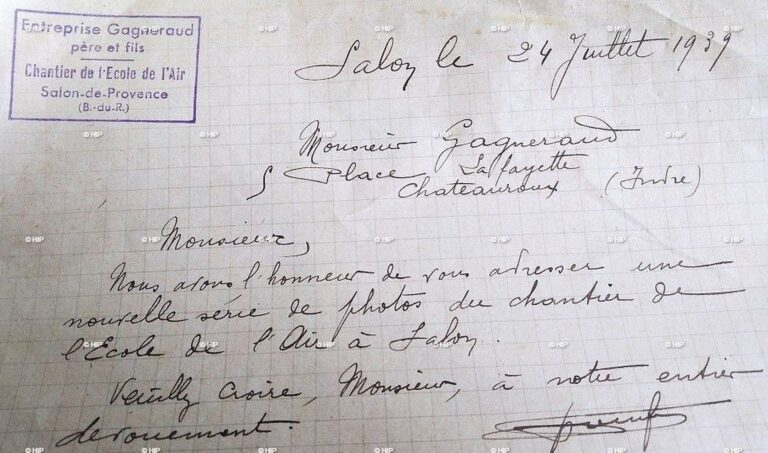 Entreprise Gagneraud
père et fils
Chantier de l'Ecole de l'Air
Salon-de-Provence
(B.-du-R.)
Salon le 24 Juillet 1939
Monsieur Gagneraud
5 Place Lafayette
Chateauroux (Indre)
Monsieur,
Nous avons l'honneur de vous adresser une
nouvelle série de photos du chantier de
l'Ecole de l'Air à Salon.
Veuillez croire, Monsieur, à notre entier
devouement.
© HIP